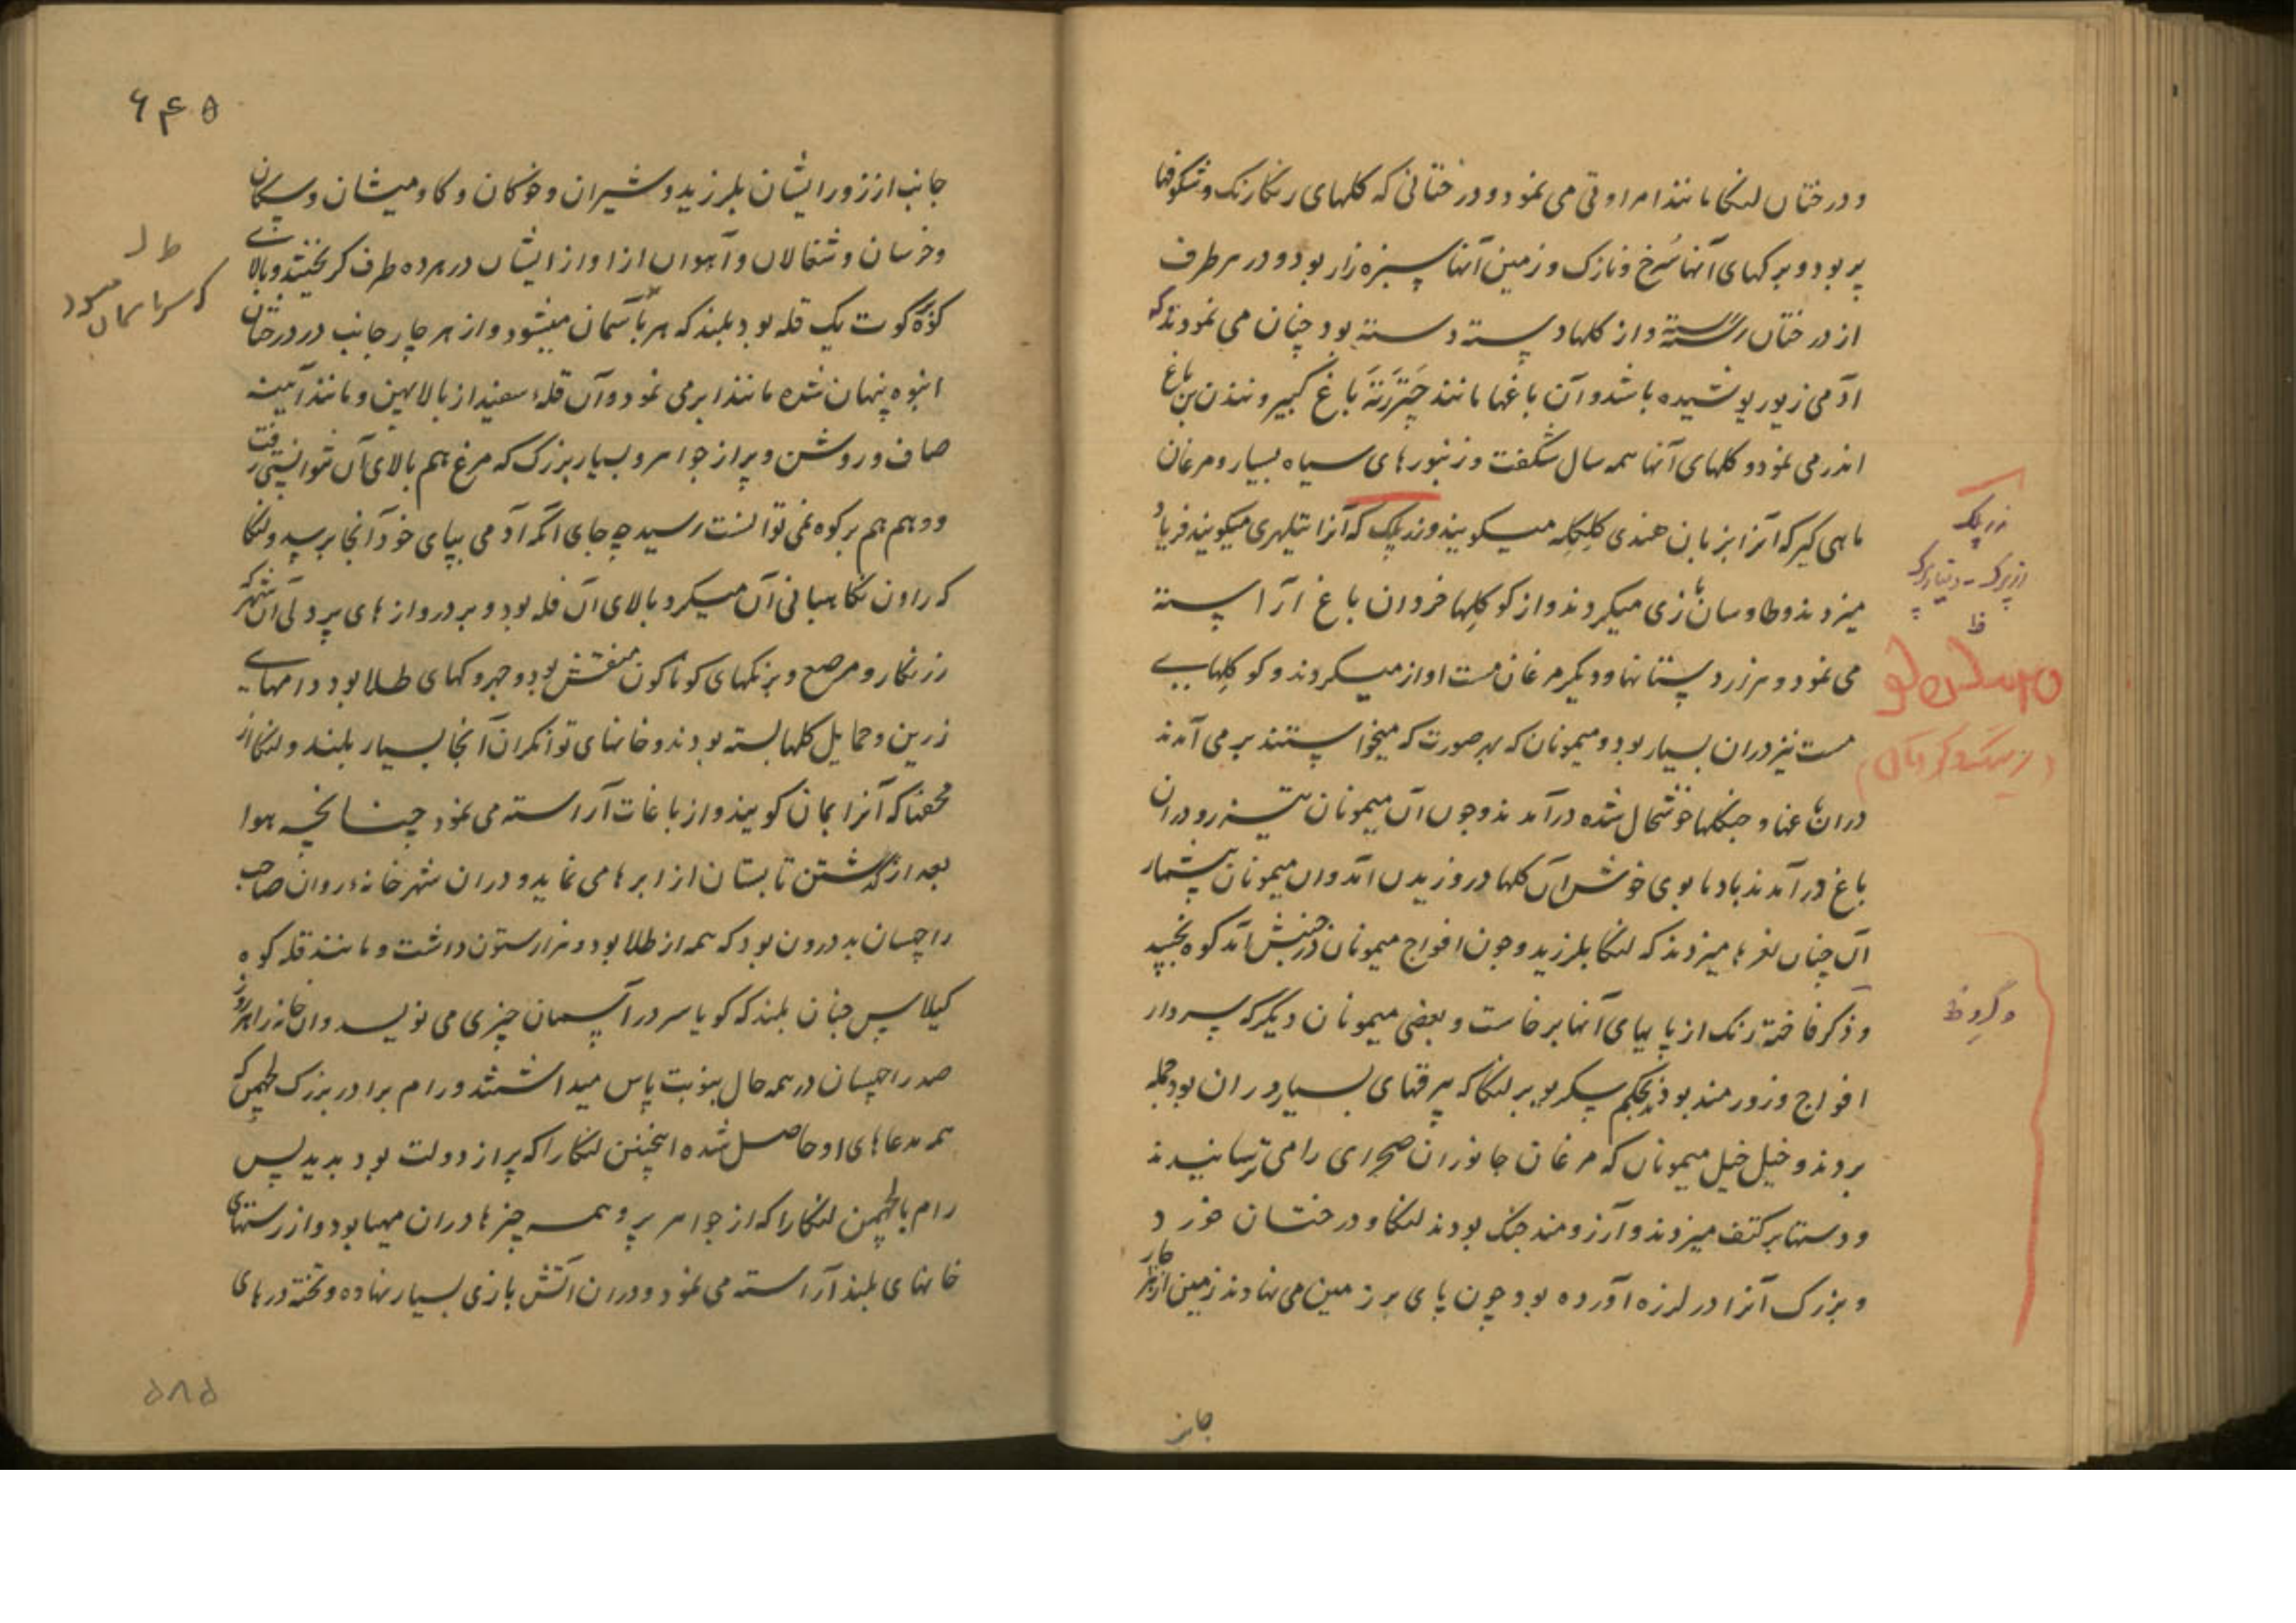 و درختان لنکا مانند امراوتی می نمود و درختانی که کلهای رنکارنک و شکوفها
پر بود و برکهای آنها سُرخ و نازک و زمین آنها سبزه زار بود و در هر طرف
از درختان رسته و از کلها دسته دسته بود چنان می نمودند که
آدمی زیور پوشیده باشد و آن باغها مانند چَتررَتَه باغ کبیر و نندن بن باغ
اندر می نمود و کلهای آنها همه سال شکفت و زنبورهای سیاه بسیار و مرغان
ماهی کیر که آنرا بزبان هندی کلکله میکویند و زرپلک که آنرا تیلهری میکویند فریاد
میزدند و طاوسان بازی میکردند و از کوکلها خروان باغ آراسته
می نمود و هزاردستانها و دیکر مرغان مست اواز میکردند و کوکلهایی
مست نیز دران بسیار بود و میمونان که بهر صورت که میخواستند برمی آمدند
دران باغها و جنکلها خوشحال شده درآمدند و چون آن میمونان تیزرو دران
باغ درآمدند بادها بوی خوش آن کلها در وزیدن آمد وان میمونان بیشمار
آن چنان نعرها میزدند که لنکا بلرزید و چون افواج میمونان در جنبش آمد کوه بجنبید
و ذکر فاخته رنک از پایهای آنها برخاست و بعضی میمونان دیکر که سردار
افواج و زورمند بودند بحکم سکریو بر لنکا که بیرقهای بسیار دران بود حمله
بردند و خیل خیل میمونان که مرغان جانوران صحرای را می ترسانیدند
و دستها بر کتف میزدند و آرزومند جنک بودند لنکا و درختان خورد
و بزرک آنرا در لرزه آورده بود چون پای بر زمین می نهادند زمین از هر چار
جانب
زرپلک
وگرد ظ
۶۴۵
جانب از زور ایشان بلرزید و شیران و خوکان و کاومیشان و سکان
و خرسان و شغالان و آهوان از اواز ایشان در هر ده طرف کریختند و بالای
کوه ترکوت یک قله بود بلند که سر بآسمان میشود و از هر چار جانب در درختان
انبوه پنهان شده مانند ابر می نمود و آن قلهٔ سفید از بالا پهن و مانند آیینه
صاف و روشن و پر از جواهر و بسیار بزرک که مرغ هم بالای آن نتوانستی رفت
و وهم هم بر کوه نمی توانست رسید چه جای آنکه آدمی بپای خود آنجا برسد و لنکا
که راون نکاهبانی آن میکرد بالای آن قله بود و بر دروازهای پردلی آن شهر که
زرنکار و مرصع و برنکهای کوناکون منقش بود و جهروکهای طلا بود دامهای
زرین و حمایل کلها بسته بودند و خانهای توانکران آنجا بسیار بلند و لنکا از
محفها که آنرا بمان کویند و از باغات آراسته می نمود چنانچه هوا
بعد از گذشتن تابستان از ابرها می نماید و دران شهر خانهٔ راون صاحب
راچسان بد درون بود که همه از طلا بود و هزار ستون داشت و مانند قله کوه
کیلاس چنان بلند که کویا سر در آسمان چیزی می نویسد وان خانه را هر روز
صد راچسان در همه حال بنوبت پاس میداشتند و رام برادر بزرک لچهمن که
همه مدعاهای او حاصل شده اینچنین لنکا را که پر از دولت بود بدید پس
رام با لچهمن لنکا را که از جواهر پر و همه چیزها دران مهیا بود و از رستهای
خانهای بلند آراسته می نمود و دران آتش بازی بسیار نهاده و تخته درهای
که سر باسمان میسود
۵۸۵